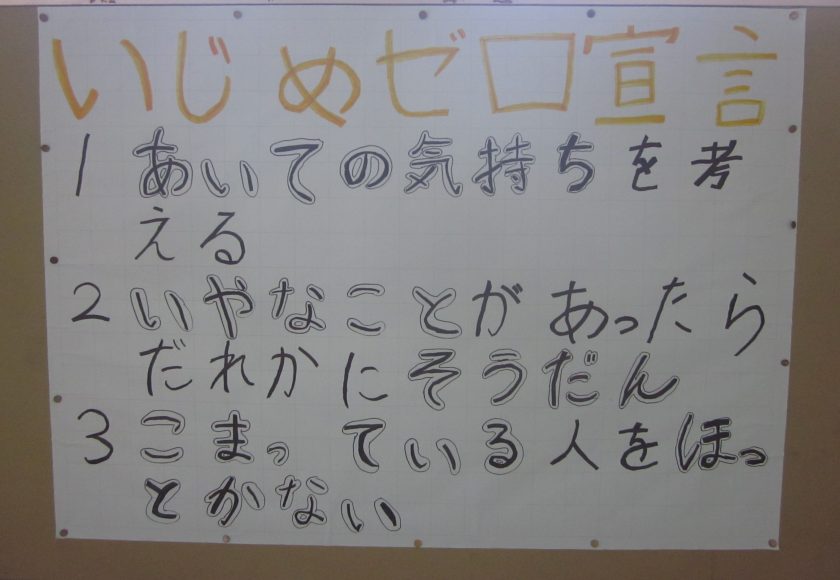 いじめゼロ宣言
1 あいての気持ちを考
える
2 いやなことがあったら
だれかにそうだん
3 こまっている人をほっ
とかない